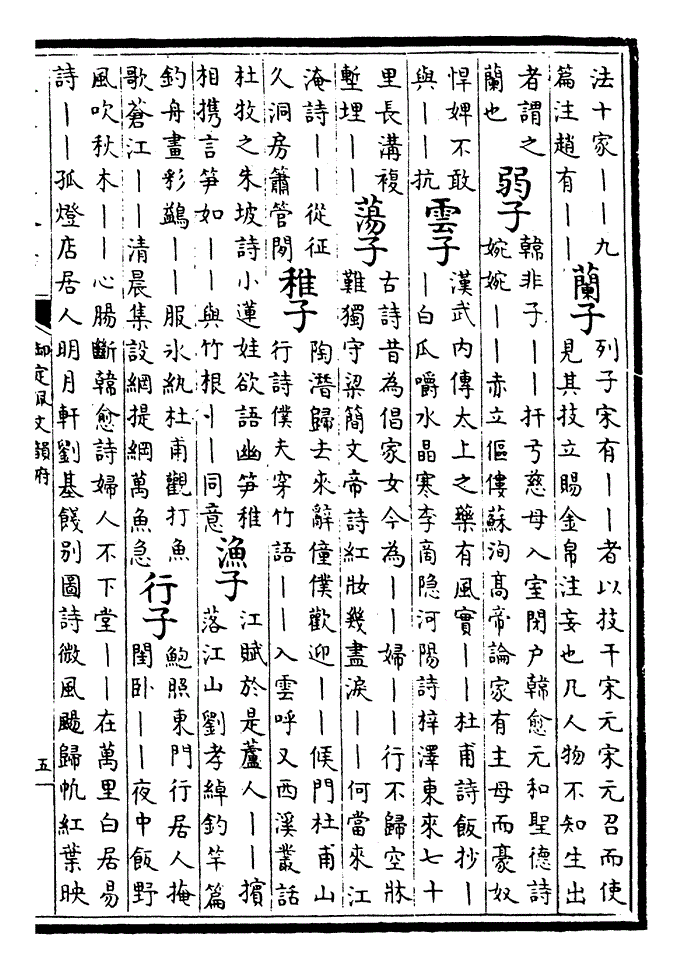 法十家丨丨九
篇注趙有丨丨
蘭子
列子宋有丨丨者以技干宋元宋元召而使
見其技立賜金帛注妄也凡人物不知生出
者謂之
蘭也
弱子
韓非子丨丨扞弓慈母入室閉户韓愈元和聖德詩
婉婉丨丨赤立傴僂蘇洵髙帝論家有主母而豪奴
悍婢不敢
與丨丨抗
雲子
漢武内傳太上之藥有風實丨丨杜甫詩飯抄丨
丨白瓜嚼水晶寒李商隐河陽詩梓澤東來七十
里長溝複
塹埋丨丨
蕩子
古詩昔為倡家女今為丨丨婦丨丨行不歸空牀
難獨守梁簡文帝詩紅妝幾盡淚丨丨何當來江
淹詩丨丨從征
久洞房簫管閒
稚子
陶潛歸去來辭僮僕歡迎丨丨候門杜甫山
行詩僕夫穿竹語丨丨入雲呼又西溪叢話
杜牧之朱坡詩小蓮娃欲語幽笋稚
相携言笋如丨丨與竹根丨丨同意
漁子
江賦於是蘆人丨丨擯
落江山劉孝綽釣竿篇
釣舟畫彩鷁丨丨服氷紈杜甫觀打魚
歌蒼江丨丨清晨集設網提綱萬魚急
行子
鮑照東門行居人掩
閨卧丨丨夜中飯野
風吹秋木丨丨心腸斷韓愈詩婦人不下堂丨丨在萬里白居易
詩丨丨孤燈店居人明月軒劉基餞别圖詩微風颺歸帆紅葉映
御定佩文韻府
五